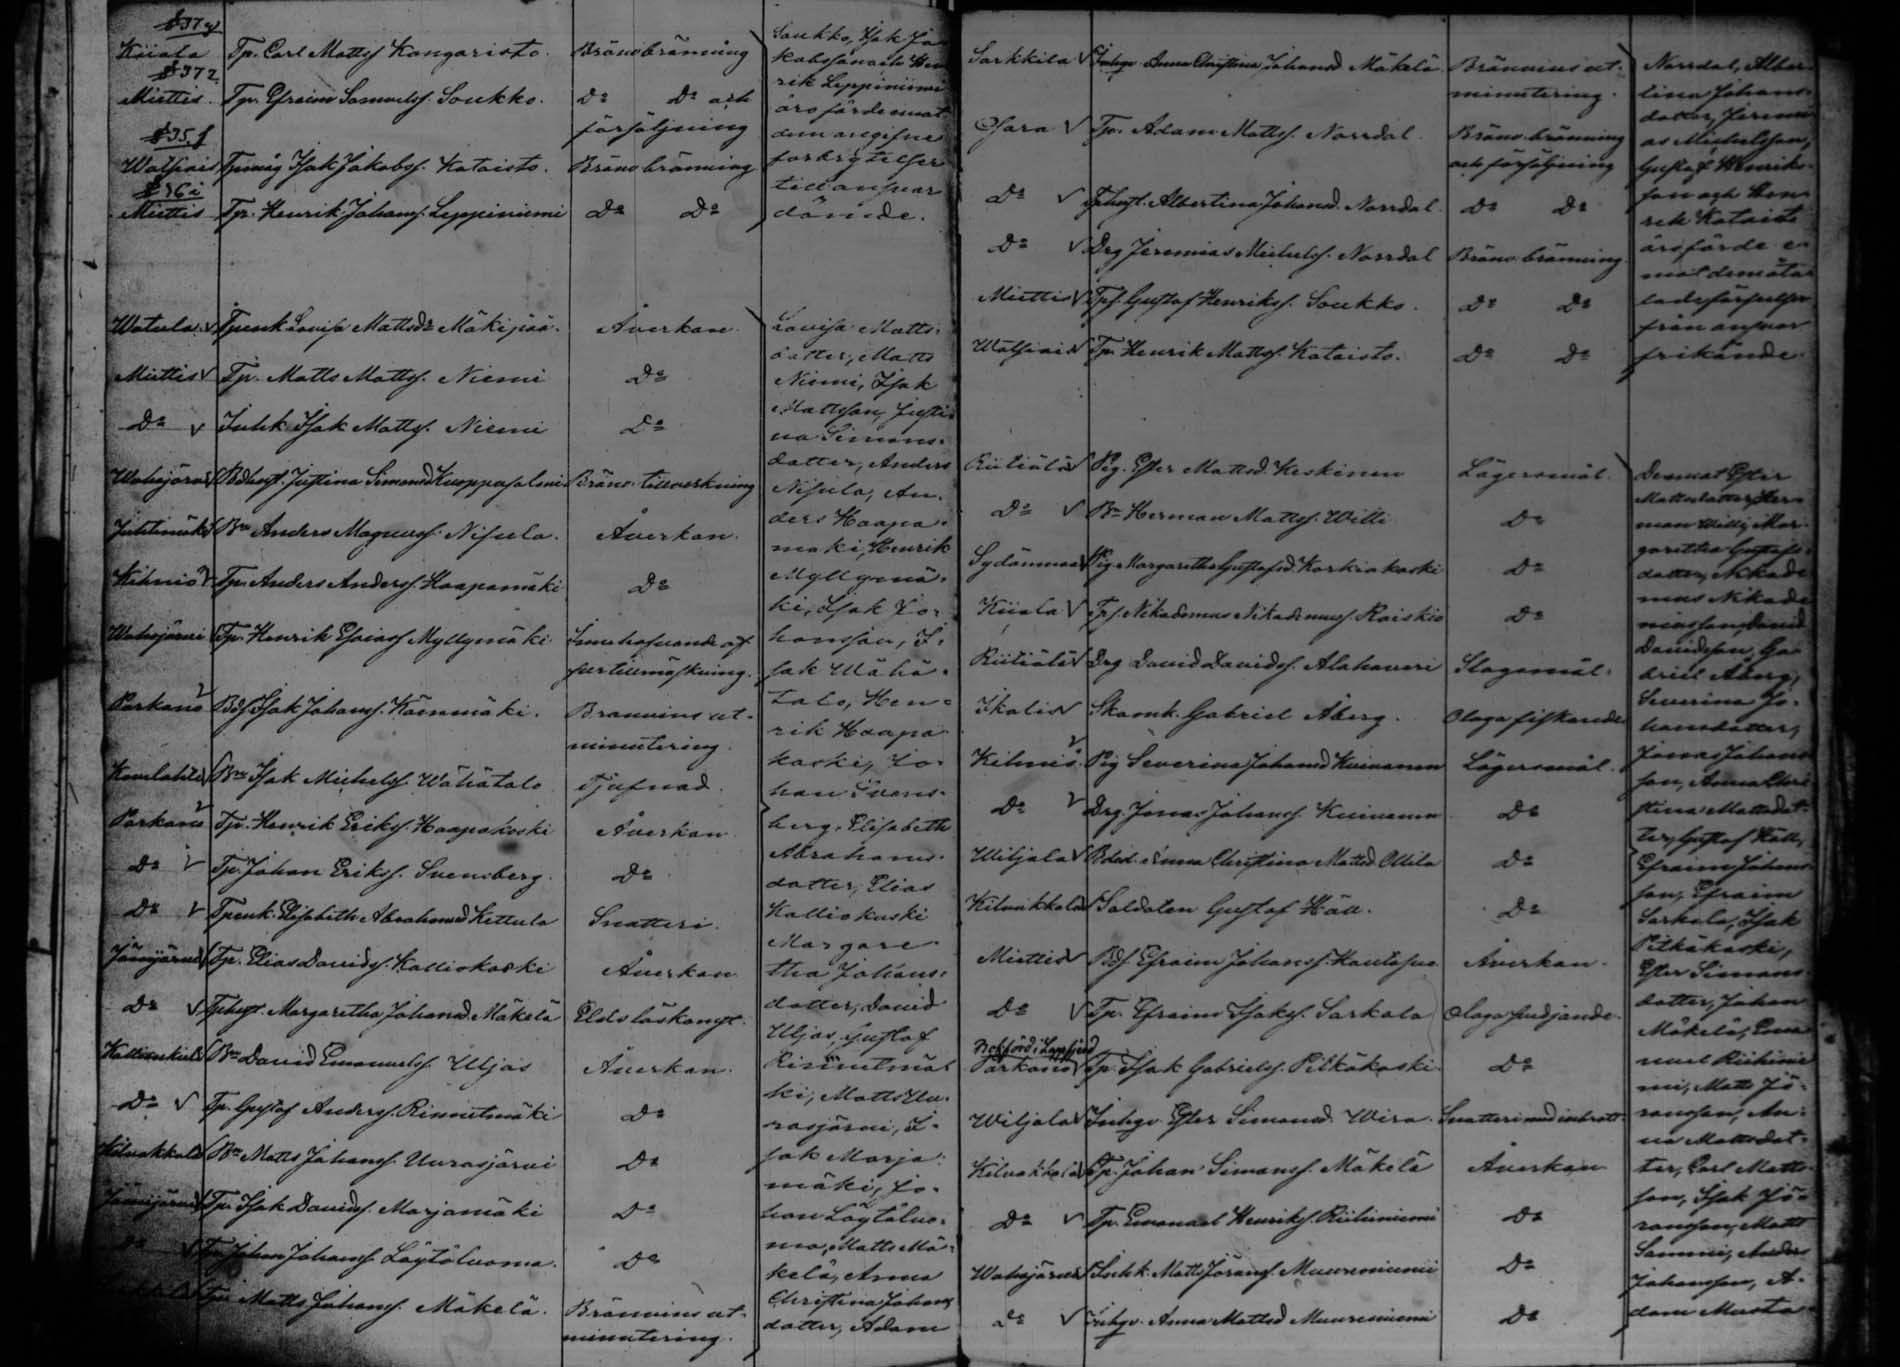 §37 g
Kiiala Tp. Carl Mattss. Kangaristo. Bränvbränning
§37 z
Miettis Tp. Efraim Samuelss. Soukko. Do Do och
försäljning
§35 f
Isak Jakobss. Kataisto. Bränvbränning
§36 i
Miettis Tp. Henrik Johanss. Leppiniemi Do Do
Soukko, Isak Ja-
kobsson och Hen
rik Leppiniemi
äro förde emot
dem angifne
förbrytelser
till ansvar
dömde.
Watula Tpenk. Lovisa Mattsdr Mäkipää. Åverkan.
Miettis Tp. Matts Mattss. Niemi Do
Do Inhk Isak Mattss. Niemi Do
Wahojärvi Justina Simonsd Kuoppasalmi Bränv. tillverkning
Juhtimäki Bn Anders Magnuss. Nisula. Åverkan.
Kihniö Tp. Anders Anderss. Haapamäki Do
Wahojärvi Tp. Henrik Esaiass Myllymäki Innehafvande af
Parkano Bds Isak Johanss. Käenmäki. Bränvins ut-
minutering.
Bn Isak Michelss Wähätalo Tjufnad.
Parkano Tp. Henrik Erikss. Haapakoski Åverkan
Do Tp. Johan Erikss. Svensberg. Do
Do Tpenk. Elisabeth Abrahamsd Kettula Snatteri.
Jämijärvi Tp. Elias Davidss. Kalliokoski Åverkan
Do Margaretha Johansd. Mäkelä Eldslöskangt.
Bn David Emanuelss Uljas Åverkan.
Do Tp. Gustaf Anderss. Rinnetmäki Do
Kilvakkala Bn Matts Johanss. Uurasjärvi Do
Jämijärvi Tp. Isak Davidss. Marjamäki Do
Do Tp. Johan Johanss. Löytöluoma. Do
Tp. Matts Johanss. Mäkelä. Bränvins ut-
minutering.
Lovisa Matts-
dotter, Matts
Niemi, Isak
Mattsson, Justi-
na Simons-
dotter, Anders
Nisula, An-
ders Haapa-
mäki, Henrik
Myllymä-
ki, Isak Jo-
hansson, I-
sak Wähä-
talo, Hen-
rik Haapa-
koski, Jo-
han Svens-
berg, Elisabeth
Abrahams-
dotter, Elias
Kalliokoski
Margare-
tha Johans-
dotter, David
Uljas, Gustaf
Rinnetmä-
ki, Matts Uu-
rasjärvi, I-
sak Marja-
mäki, Jo-
han Löytöluo-
ma, Matts Mä-
kelä, Anna
Christina Johans
dotter, Adam
Sarkkila Inhqv Anna Christina Johansd Mäkelä Bränvins ut-
minutering.
Osara Tp. Adam Mattss. Norrdal. Bränv. bränning
och försäljning
Do Albertina Johansd. Norrdal Do Do
Do Drg Jeremias Michelss. Norrdal Bränv. bränning
Miettis Tps. Gustaf Henrikss. Soukko. Do Do
Tp. Henrik Mattss. Kataisto. Do Do
Norrdal, Alber-
tina Johans-
dotter, Jeremi
as Michelsson,
Gustaf Henriks-
son och Hen-
rik Kataisto
äro förde e-
mot dem åta-
lade förseelser
från ansvar
frikände.
Riitiälä Pig. Ester Mattsd. Keskinen Lägersmål.
Do Bn Herman Mattss. Willi Do
Sydänmaa Pig. Margaretha Gustafsd. Korkiakoski Do
Kiiala Tps Nikodemus Nikodemuss Raiskio Do
Riitiälä Drg David Davidss. Alahaveri Slagsmål.
Ikalis Skomk. Gabriel Åberg. Olaga fiskande
Kihniö Pig Severina Johansd Kuivanen Lägersmål.
Do Drg. Jonas Johanss. Kuivanen Do
Wiljala Anna Christina Mattsd Ollila Do
Kilvakkala Soldaten Gustaf Häll. Do
Miettis Bds. Efraim Johanss. Åverkan.
Do Tp. Efraim Isakss. Sarkola Olaga svedjande.
Parkano Tp. Isak Gabrielss. Pitkäkoski Do
Wiljala Inhqv Ester Simonsd. Wira. Snatteri med inbrott
Kilvakkala Tp. Johan Simonss. Mäkelä Åverkan
Do Tp. Emanuel Henrikss. Riihiniemi Do
Wahojärvi Inhk. Matts Jöranss. Muureniemi Do
Do Inhqv. Anna Mattsd Muureniemi Do
Demot Ester
Mattsdotter, Her-
man Willi, Mar-
garetha Gustafs-
dotter, Nikode
mus Nikode
musson, David
Davidsson, Ga-
briel Åberg,
Severina Jo-
hansdotter,
Jonas Johans-
son, Anna Chri-
stina Mattsdot-
ter, Gustaf Häll,
Efraim Johans-
son, Efraim
Sarkola, Isak
Pitkäkoski,
Ester Simons-
dotter, Johan
Mäkelä, Ema-
nuel Riihinie
mi, Matts Jö-
ransson, An-
na Mattsdot-
ter, Carl Matts-
son, Isak Jö-
ransson, Matts
Sammi, Anders
Johansson, A-
dam Musta-